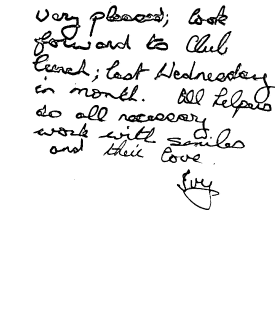 very pleased; look
forward to Club
lunch; last Wednesday
in month. All helpers
do all necessary
work with smiles
and their love.
Ivy